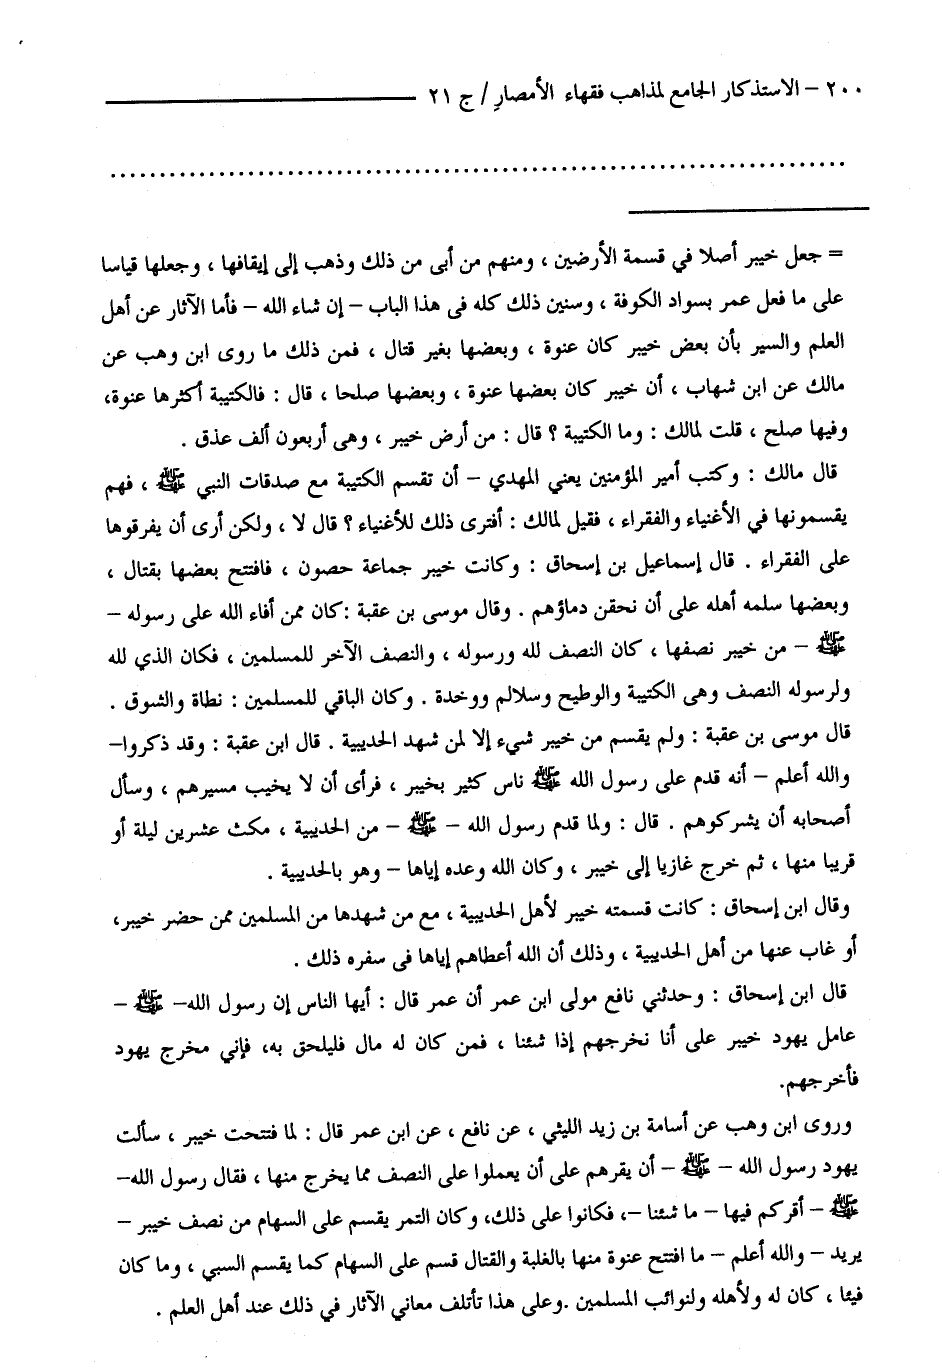 ٢٠٠ – الاستذكار الجامع لمذاهب فقهاء الأمصار / ج ٢١
= جعل خيبر أصلا في قسمة الأرضين ، ومنهم من أبى من ذلك وذهب إلى إيقافها ، وجعلها قياسا
على ما فعل عمر بسواد الكوفة ، وسنين ذلك كله فى هذا الباب – إن شاء الله – فأما الآثار عن أهل
العلم والسير بأن بعض خيبر كان عنوة ، وبعضها بغير قتال ، فمن ذلك ما روى ابن وهب عن
مالك عن ابن شهاب ، أن خيبر كان بعضها عنوة ، وبعضها صلحا ، قال : فالكتيبة أكثرها عنوة،
وفيها صلح ، قلت لمالك : وما الكتيبة ؟ قال : من أرض خيبر ، وهى أربعون ألف عذق .
قال مالك : وكتب أمير المؤمنين يعني المهدي – أن تقسم الكتيبة مع صدقات النبي ﷺ ، فهم
يقسمونها في الأغنياء والفقراء ، فقيل لمالك : أفترى ذلك للأغنياء ؟ قال لا ، ولكن أرى أن يفرقوها
على الفقراء . قال إسماعيل بن إسحاق : وكانت خيبر جماعة حصون ، فافتتح بعضها بقتال ،
وبعضها سلمه أهله على أن نحقن دماؤهم . وقال موسى بن عقبة :كان ممن أفاء الله على رسوله –
ﷺ – من خيبر نصفها ، كان النصف لله ورسوله ، والنصف الآخر للمسلمين ، فكان الذي لله
ولرسوله النصف وهى الكتيبة والوطيح وسلالم ووخدة . وكان الباقي للمسلمين : نطاة والشوق .
قال موسى بن عقبة : ولم يقسم من خيبر شيء إلا لمن شهد الحديبية . قال ابن عقبة : وقد ذكروا–
والله أعلم – أنه قدم على رسول الله ﷺ ناس كثير بخيبر ، فرأى أن لا يخيب مسيرهم ، وسأل
أصحابه أن يشركوهم . قال : ولما قدم رسول الله – ﷺ – من الحديبية ، مكث عشرين ليلة أو
قريبا منها ، ثم خرج غازيا إلى خيبر ، وكان الله وعده إياها – وهو بالحديبية .
وقال ابن إسحاق : كانت قسمته خيبر لأهل الحديبية ، مع من شهدها من المسلمين ممن حضر خيبر،
أو غاب عنها من أهل الحديبية ، وذلك أن الله أعطاهم إياها فى سفره ذلك .
قال ابن إسحاق : وحدثني نافع مولى ابن عمر أن عمر قال : أيها الناس إن رسول الله– ﷺ –
عامل يهود خيبر على أنا نخرجهم إذا شئنا ، فمن كان له مال فليلحق به، فإني مخرج يهود
فأخرجهم.
وروى ابن وهب عن أسامة بن زيد الليثي ، عن نافع ، عن ابن عمر قال : لما فتتحت خيبر ، سألت
يهود رسول الله – ﷺ – أن يقرهم على أن يعملوا على النصف مما يخرج منها ، فقال رسول الله–
ﷺ – أقركم فيها – ما شئنا –، فكانوا على ذلك، وكان التمر يقسم على السهام من نصف خيبر –
يريد – والله أعلم – ما افتتح عنوة منها بالغلبة والقتال قسم على السهام كما يقسم السبي ، وما كان
فيئا ، كان له ولأهله ولنوائب المسلمين .وعلى هذا تأتلف معاني الآثار في ذلك عند أهل العلم .